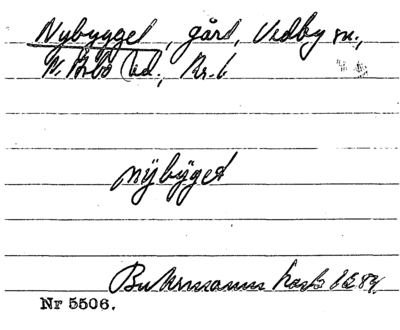 Nybygget, gård, Vedby sn.,
N. Åsbo hd., Kr. l
nÿbÿget
Buhrmanns karta 1684
Nr 5506.